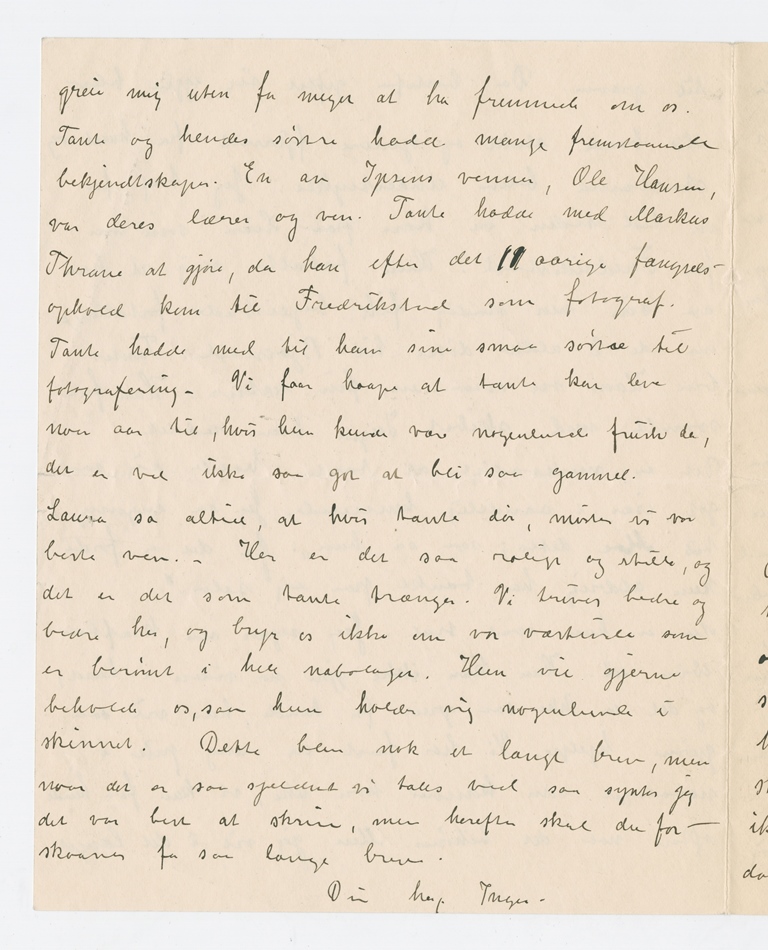 greie mig uten for meget at ha fremmede om os.
Tante og hendes søstre hadde mange fremstaaende
bekjendtskaper. En av Ipsens venner, Ole Hansen,
var deres lærer og ven. Tante hadde med Markus
Thrane at gjøre, da han efter det 11 aarige fængsels-
ophold kom til Fredrikstad som fotograf.
Tante hadde med til ham sine smaa søstre til
fotografering - Vi faar haape at tante kan leve
noen aar til, hvis hun kunde være nogenlunde frisk da,
det er vel ikke saa got at bli saa gammel.
Laura sa altid, at hvis tante dør, mister vi vor
beste ven. - Her er det saa rolig og stille, og
det er det som tante trænger. Vi trives bedre og
bedre her, og bryr os ikke om vor værtinde som
er berømt i hele nabolaget. Hun vil gjerne
beholde os, saa hun holder sig nogenlunde i
skinnet. Dette blev nok et langt brev, men
naar det er saa sjeldent vi tales ved saa syntes jeg
det var best at skrive, men herefter skal du for-
skaanes for saa lange breve.
Din heng. Inga.